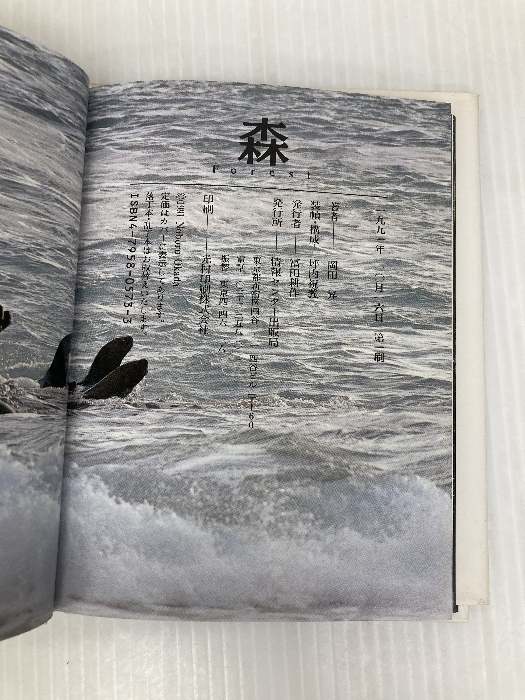 森
Forest
一九九一年 一〇月一六日 第一刷
著者── 岡田 昇
装幀・構成── 坪内祝義
発行者── 冨田耕作
発行所── 情報センター出版局
東京都新宿区四谷 四谷ビル 〒160
電話
振替 東京
印刷── 株式会社
©1991 Noboru Okada
定価はカバーに表示してあります。
落丁本・乱丁本はお取替えいたします。
ISBN4-7958-0573-5